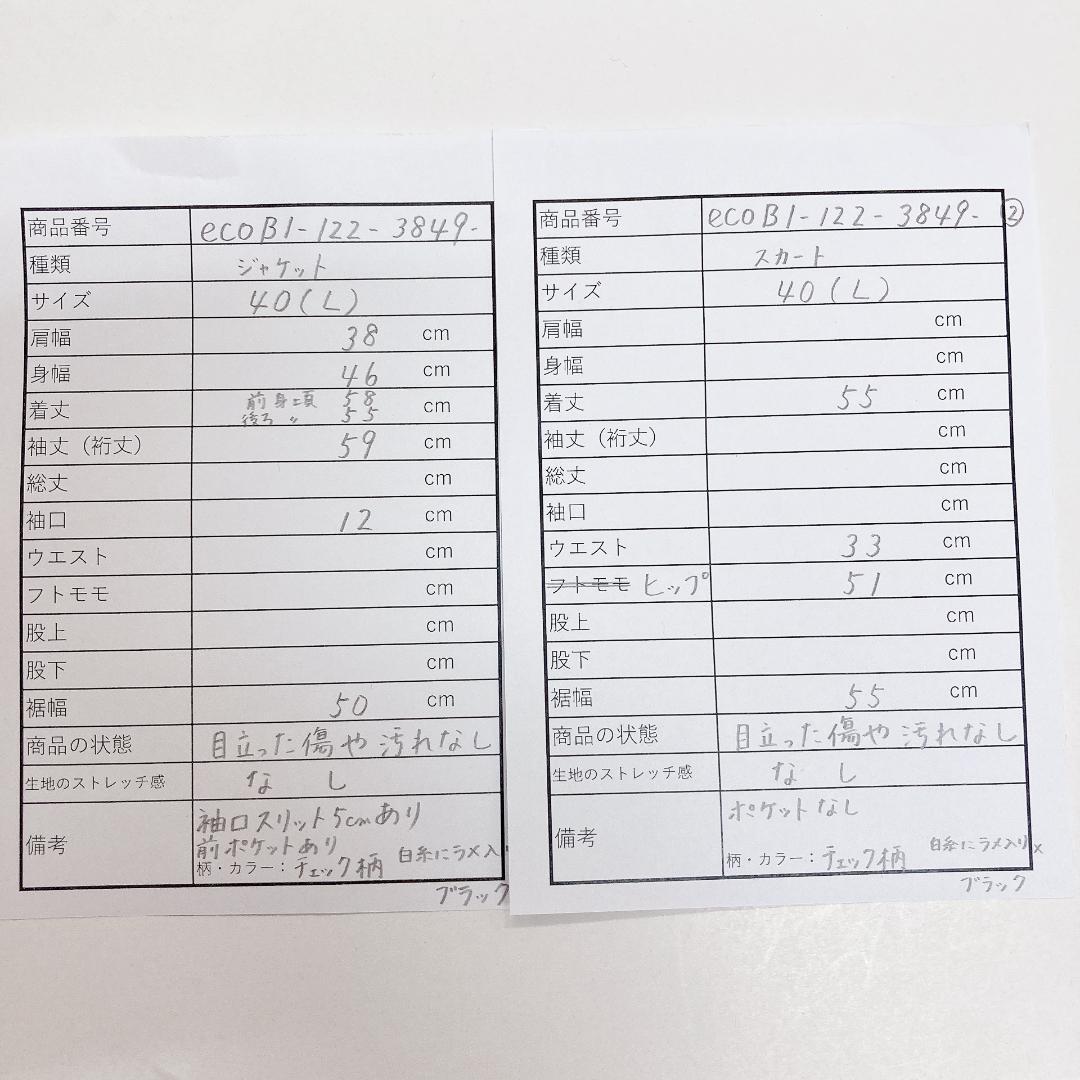 商品番号 ecoB1-122-3849-
種類 ジャケット
サイズ 40(L)
肩幅 38 cm
身幅 46 cm
着丈 前身頃 58 cm
後ろ 〃 55
袖丈（裄丈） 59 cm
総丈 cm
袖口 12 cm
ウエスト cm
フトモモ cm
股上 cm
股下 cm
裾幅 50 cm
商品の状態 目立った傷や汚れなし
生地のストレッチ感 なし
備考 袖口スリット5cmあり
前ポケットあり
柄・カラー：チェック柄 白糸にラメ入
ブラック
商品番号 ecoB1-122-3849-②
種類 スカート
サイズ 40(L)
肩幅 cm
身幅 cm
着丈 55 cm
袖丈（裄丈） cm
総丈 cm
袖口 cm
ウエスト 33 cm
フトモモ ヒップ 51 cm
股上 cm
股下 cm
裾幅 55 cm
商品の状態 目立った傷や汚れなし
生地のストレッチ感 なし
備考 ポケットなし
柄・カラー：チェック柄 白糸にラメ入り×
ブラック